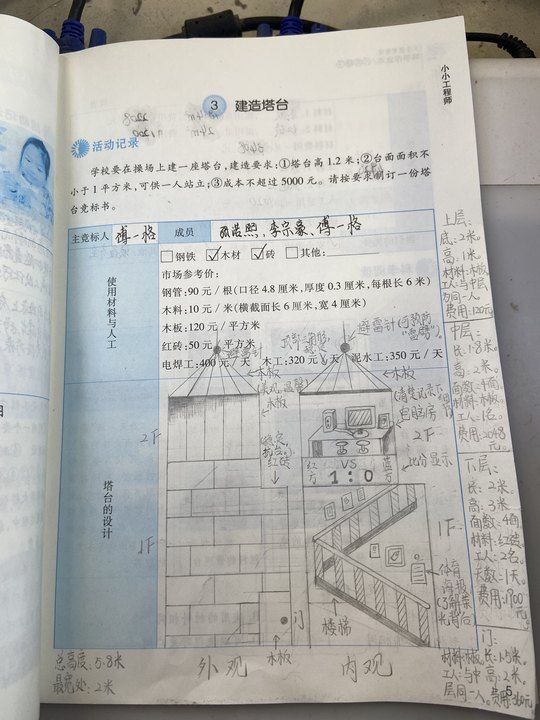 小小工程师
3 建造塔台
活动记录
学校要在操场上建一座塔台，建造要求：①塔台高 1.2 米；②台面面积不
小于 1 平方米，可供一人站立；③成本不超过 5000 元。请按要求制订一份塔
台竞标书。
主竞标人 傅一格 成员 李宗豪、傅一格
使用材料与人工
□钢铁 ☑木材 ☑砖 □其他：
市场参考价：
钢管：90 元 / 根（口径 4.8 厘米，厚度 0.3 厘米，每根长 6 米）
木料：10 元 / 米（横截面长 6 厘米，宽 4 厘米）
木板：120 元 / 平方米
红砖：50 元 / 平方米
电焊工：400 元 / 天 木工：320 元 / 天 泥水工：350 元 / 天
塔台的设计
避雷针
木板
木板
红砖
2F
1F
门
木板
外观
避雷针
木板
电脑房
2F
红方
VS
蓝方
1:0
比分显示
1F
体育
海报
楼梯
内观
总高度：5.8米
最宽处：2米
上层：
底：2米。
高：1米。
材料：木板
工人：与中层
同一人
费用：120元
中层：
长：1.8米。
高：2米。
面数：4面
材料：木板。
工人：1名。
费用：2048
元。
下层：
长：2米。
高：3米
面数：4面
材料：红砖
工人：2名。
天数：1天。
费用：1900
元。
门：
材料：木板。长：1.5米。
工人：与中 高：2米。
层同一人。费用：360元
5